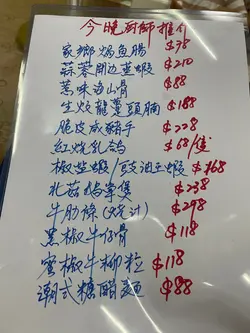 今晚廚師推介
家鄉焗魚腸 $78
蒜蓉開邊蓝蝦 $210
惹味海山骨 $88
生炆龍躉頭腩 $188
脆皮咸豬手 $228
紅燒乳鴿 $68/隻
椒盐蝦/豉油王蝦 $168
北菇鵝掌煲 $238
牛肋條 $298
黑椒牛仔骨 $118
蜜椒牛柳粒 $118
潮式糖醋麵 $88